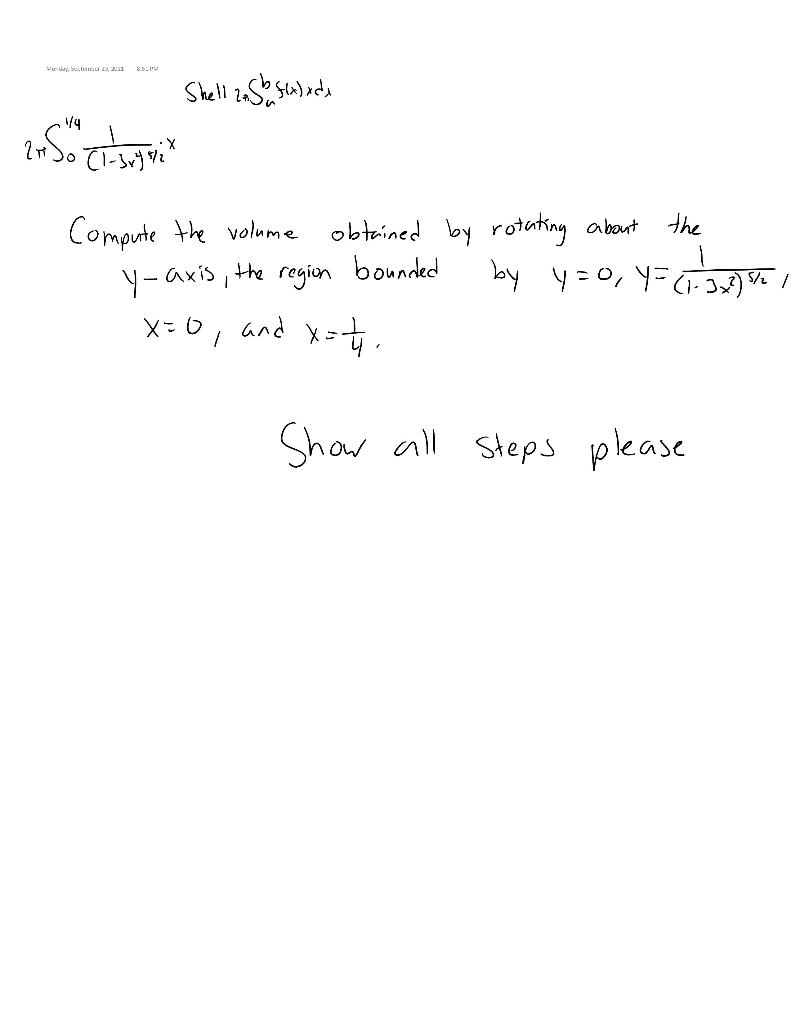 Monday, September 20, 2021 8:51 PM
Shell 2π∫ₐᵇ f(x) x dx
2π∫₀^1/4 1/(1-3x²)^5/2 · x
Compute the volume obtained by rotating about the
y-axis, the region bounded by y=0, y=1/(1-3x²)^5/2,
x=0, and x=1/4.
Show all steps please